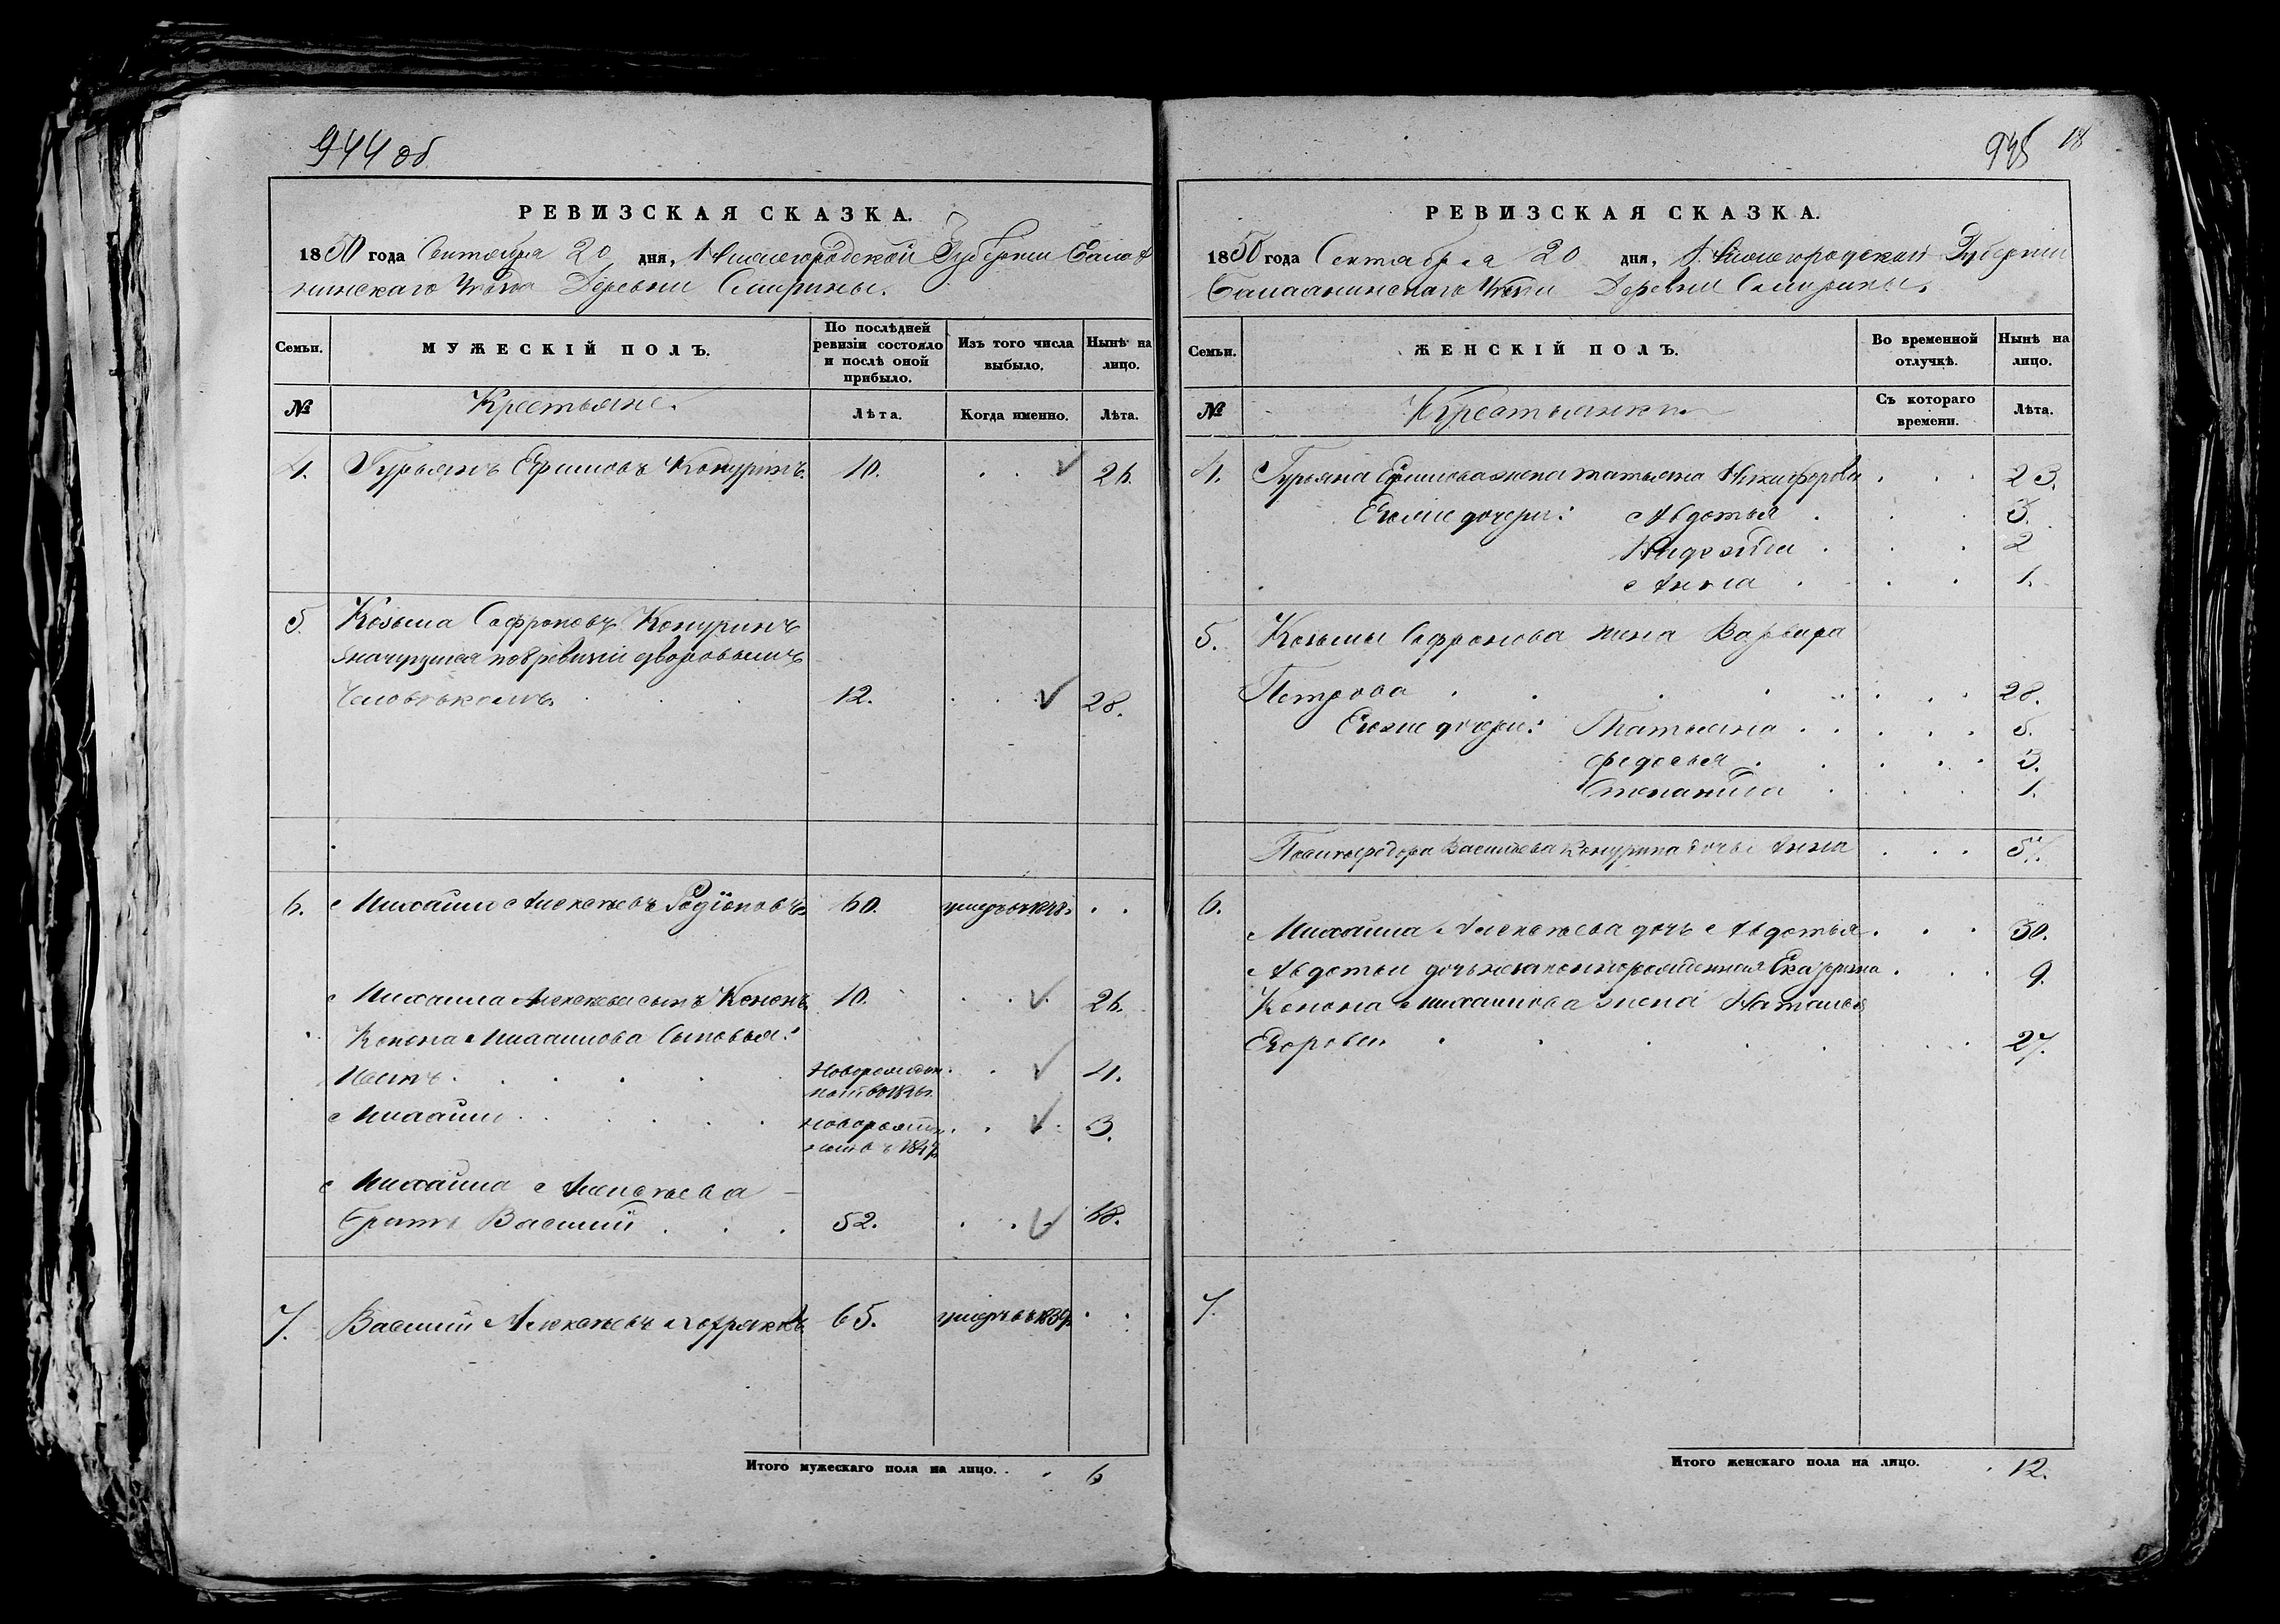 944 об
РЕВИЗСКАЯ СКАЗКА.
1850 года Сентября 20 дня, Нижегородской Губернии Балах
нинскаго Уѣзда Деревни Спирины.
Семьи.
МУЖЕСКІЙ ПОЛЪ.
По послѣдней ревизіи состояло и послѣ оной прибыло.
Изъ того числа выбыло.
Нынѣ на лицо.
№
Крестьяне.
Лѣта.
Когда именно.
Лѣта.
4. Гурьянъ Ефимовъ Конуринъ. 10. 26.
5. Козьма Софроновъ Конуринъ
значущиеся по 8 ревизіи дворовымъ
человѣкомъ 12. 28.
6. Михаило Алексѣевъ Родіоновъ 60. умеръ въ 1848.
Михаила Алексѣева сынъ Кононъ 10. 26.
Конона Михаилова Сыновья:
Иванъ Новорожден 4.
ный въ 1846г.
Михаилъ новорожден 3.
ный въ 1847г.
Михаила Алексѣева
братъ Василий 52. 68.
7. Василий Алексѣевъ 65. умеръ въ 1839.
Итого мужескаго пола на лицо. 6
945 18
РЕВИЗСКАЯ СКАЗКА.
1850 года Сентября 20 дня, Нижегородской Губерніи
Балахнинскаго Уѣзда Деревни Спирины.
Семьи.
ЖЕНСКІЙ ПОЛЪ.
Во временной отлучкѣ.
Нынѣ на лицо.
№
Крестьянки
Съ котораго времени.
Лѣта.
4. Гурьяна Ефимова жена Татьяна Никифорова 23.
Егоже дочери: Авдотья 3.
Надежда 2
Анна 1.
5. Козьмы Софронова жена Варвара
Петрова 28.
Егоже дочери: Татьяна 5.
Федосья 3.
Степанида 1.
Федора Васильева Конурина дочь Анна 54.
6.
Михаила Алексѣева дочь Авдотья 30.
Авдотьи дочь незаконнорожденная Екатерина 9.
Конона Михаилова жена Наталья
Егорова 27.
7.
Итого женскаго пола на лицо. 12.